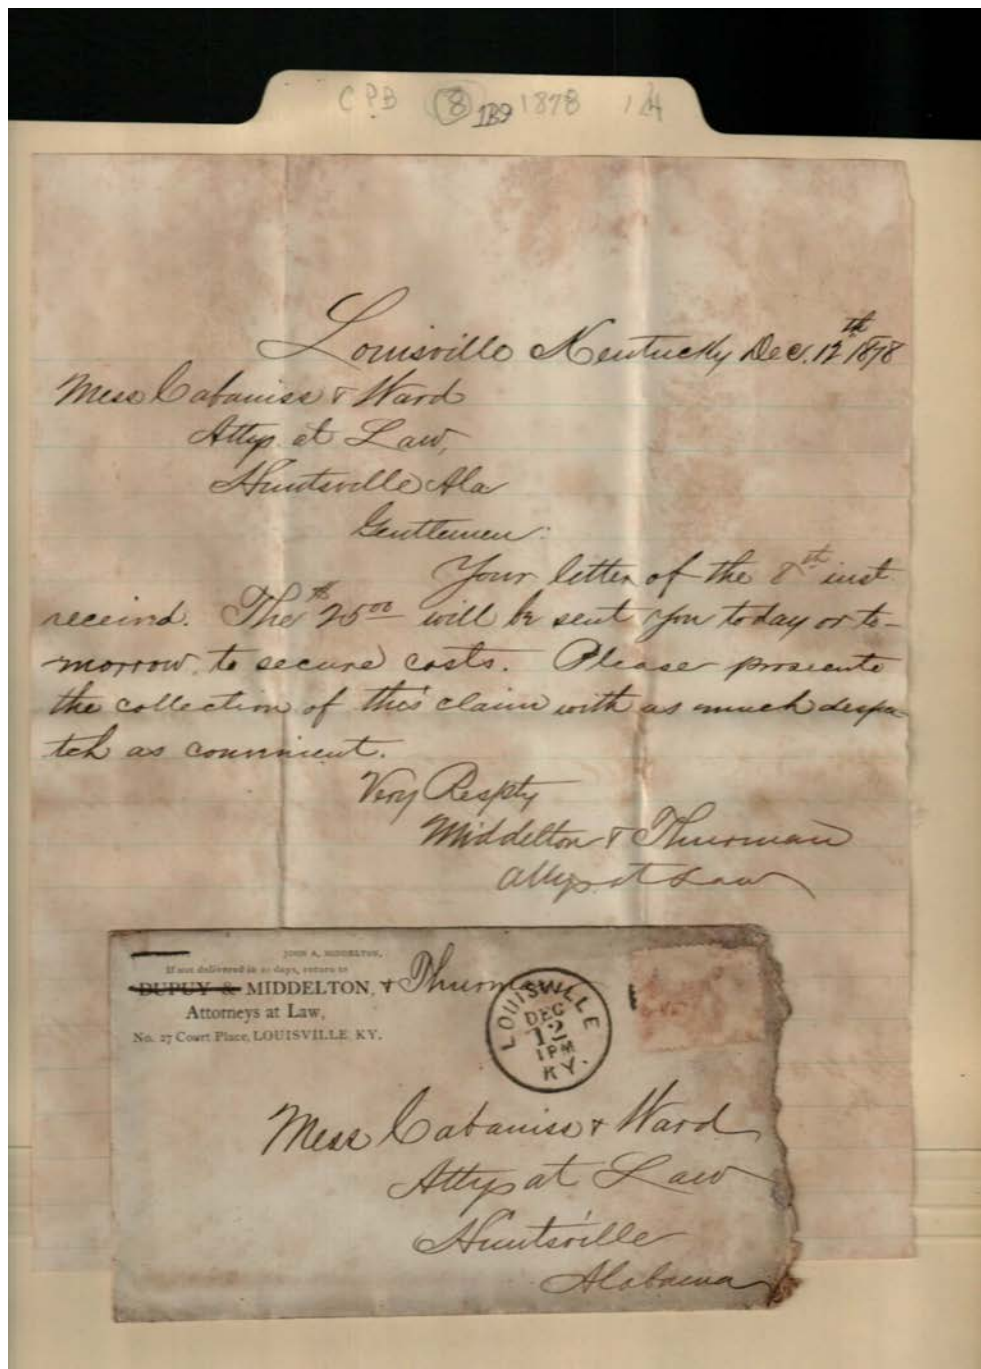 CPB 8 1B9 1878
Louisville Kentucky Dec. 12th 1878
Mess Cabaniss & Ward
Attys at Law,
Huntsville Ala
Gentlemen:
Your letter of the 8th inst
received. The $25 00 will be sent you today or to-
morrow to secure costs. Please prosecute
the collection of this claim with as much despa-
tch as convenient.
Very Respty
Middelton & Thurman
Attys at Law
JOHN A. MIDDELTON,
If not delivered in 10 days, return to
DUPUY & MIDDELTON, & Thurm
Attorneys at Law,
No. 27 Court Place, LOUISVILLE KY.
LOUISVILLE
DEC
12
1 PM
KY.
Mess Cabaniss & Ward
Attys at Law
Huntsville
Alabama